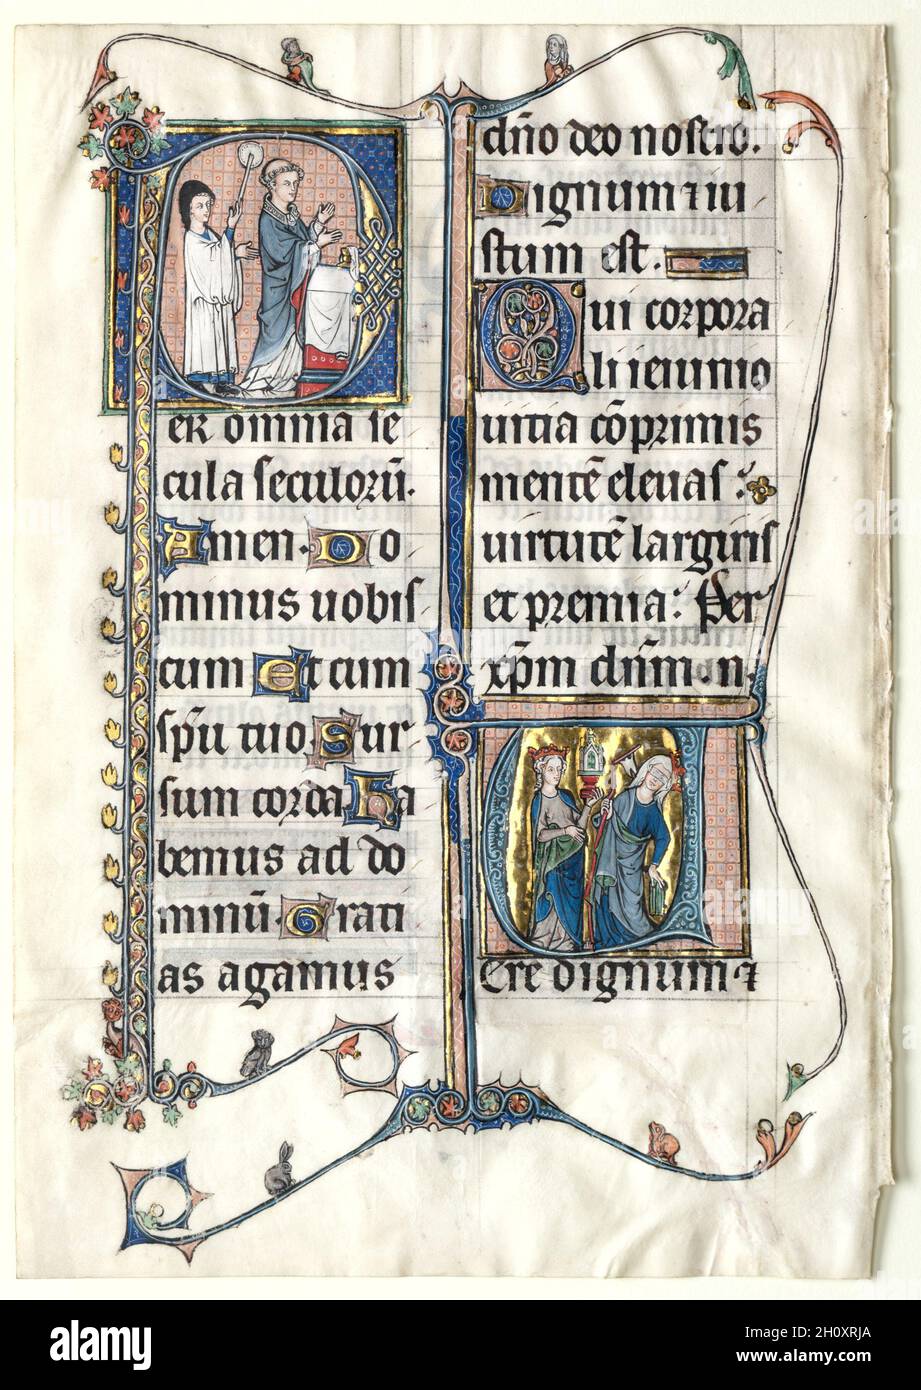 er omnia se
cula seculoru̅.
Amen. Do
minus uobis
cum Et cum
sp̅u tuo. Sur
sum corda Ha
bemus ad do
minu̅. Grati
as agamus
dn̅o deo nostro.
Dignum ⁊ iu
stum est.
Qui corpora
li ieiunio
uitia co̅primis
mente̅ eleuas.
uirtute̅ largiris
et premia. Per
xp̅m dn̅m. n.
Uere dignum ⁊
alamy
Image ID: 2H0XRJA
www.alamy.com